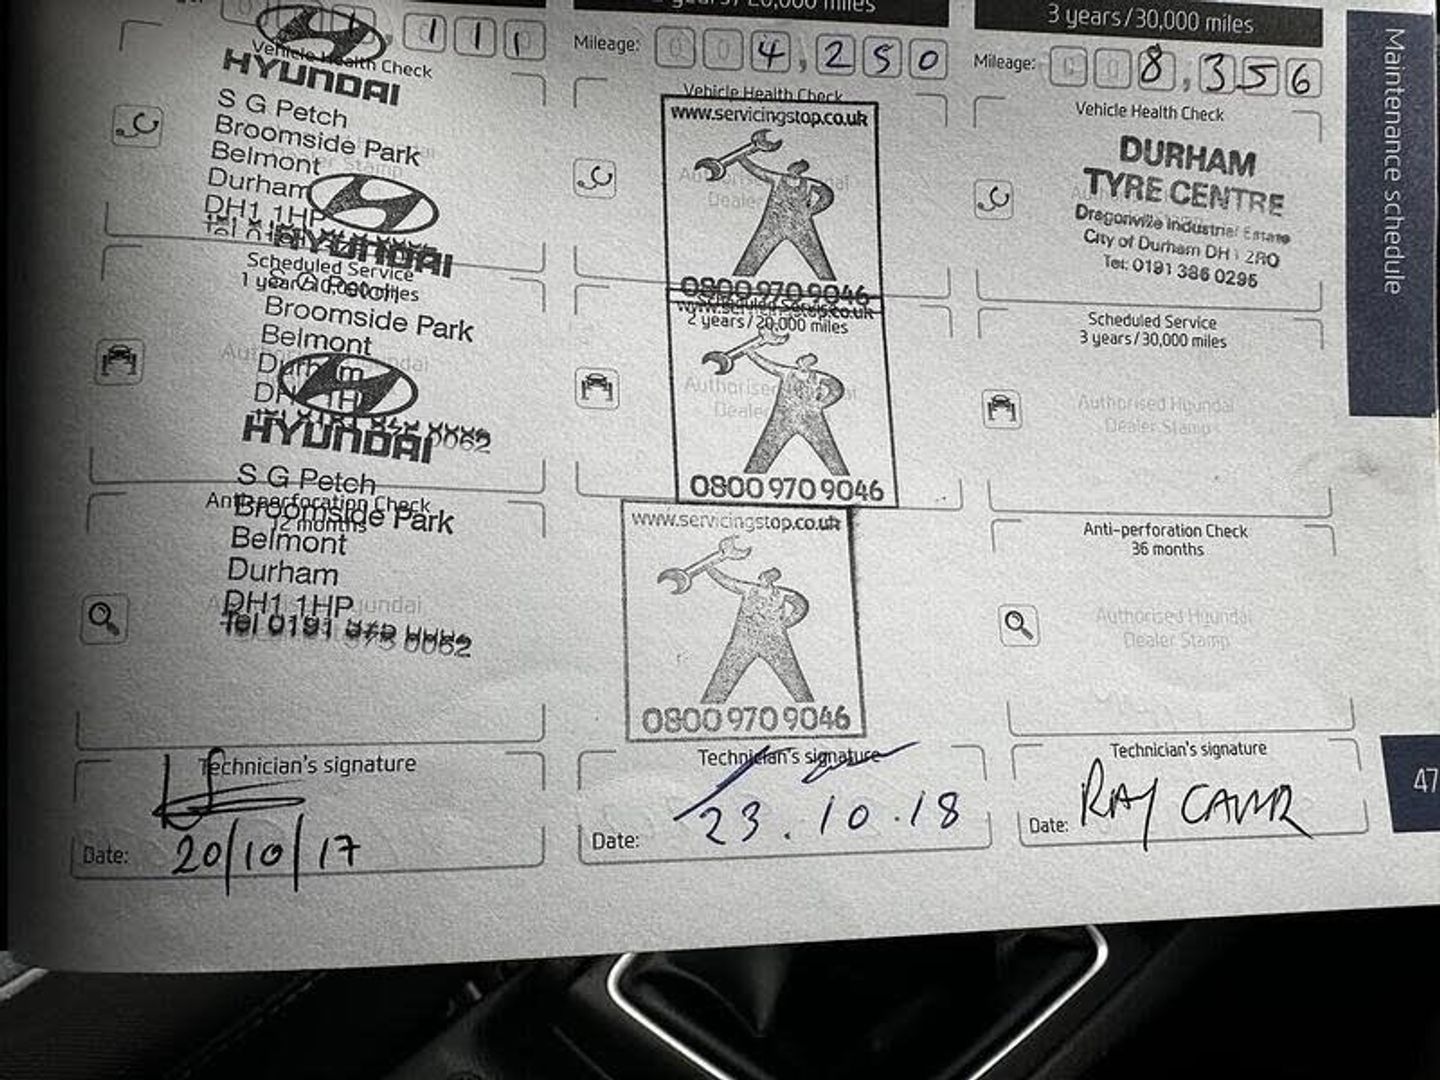 2 years/20,000 miles
3 years/30,000 miles
,111
Mileage: 004,250
Mileage: 008,356
Maintenance schedule
Vehicle Health Check
HYUNDAI
S G Petch
Broomside Park
Belmont
Durham
DH1 1HP
HYUNDAI
Scheduled Service
1 year/10,000 miles
S G Petch
Broomside Park
Belmont
Durham
DH1 1HP
HYUNDAI
S G Petch
Anti-perforation Check
12 months
Broomside Park
Belmont
Durham
DH1 1HP
Tel 0191
Technician's signature
Date: 20/10/17
Vehicle Health Check
www.servicingstop.co.uk
Authorised Hyundai
Dealer
0800 970 9046
Scheduled Service
www.servicingstop.co.uk
2 years/20,000 miles
Authorised
Dealer
0800 970 9046
www.servicingstop.co.uk
0800 970 9046
Technician's signature
Date: 23.10.18
Vehicle Health Check
DURHAM
TYRE CENTRE
Dragonville Industrial Estate
City of Durham DH1 2RO
Tel: 0191 386 0295
Scheduled Service
3 years/30,000 miles
Authorised Hyundai
Dealer Stamp
Anti-perforation Check
36 months
Authorised Hyundai
Dealer Stamp
Technician's signature
RAY
Date:
47